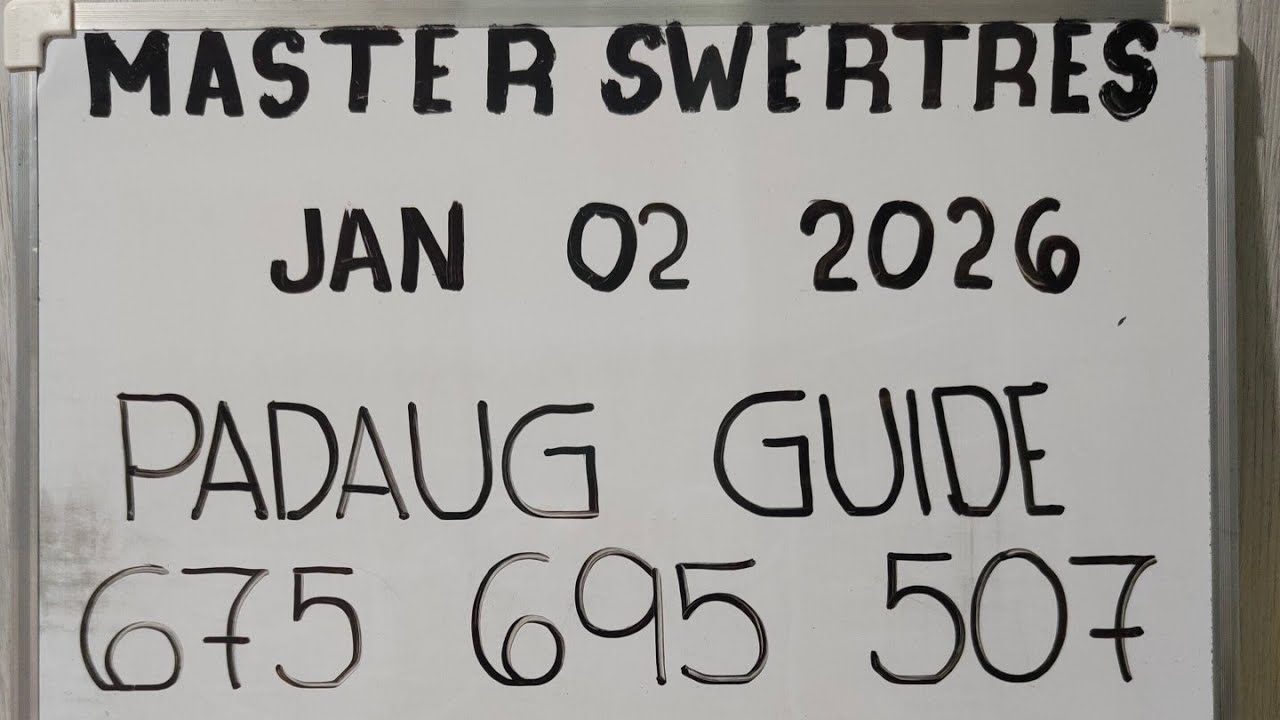 MASTER SWERTRES
JAN 02 2026
PADAUG GUIDE
675 695 507